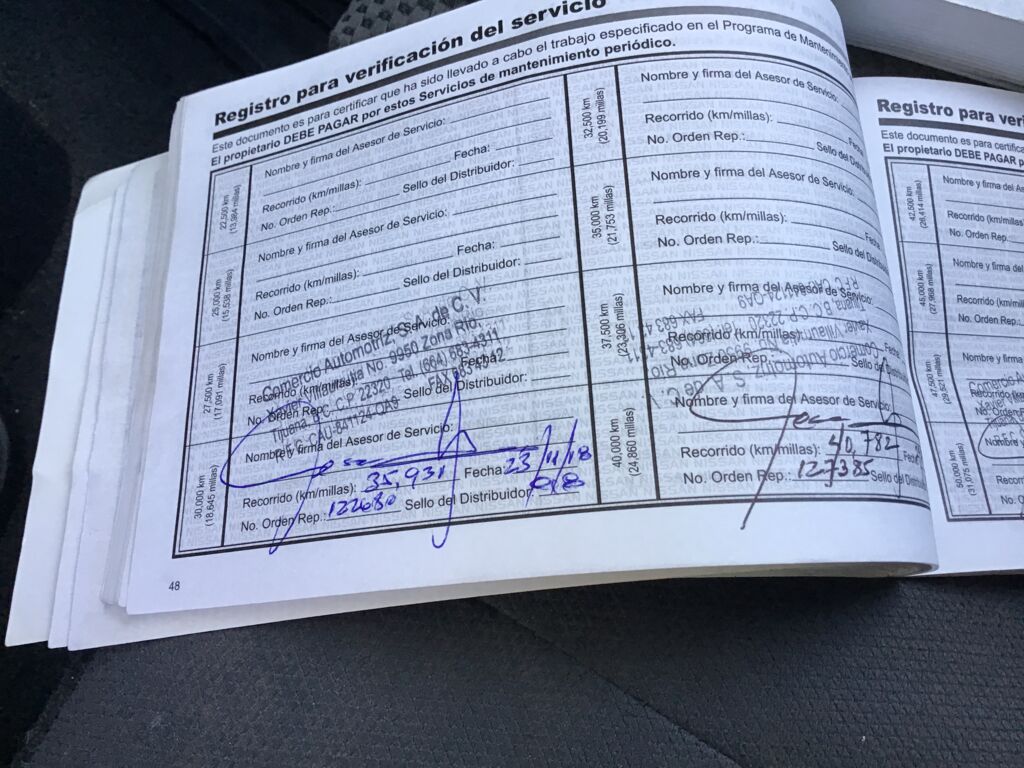 Registro para verificación del servicio
Este documento es para certificar que ha sido llevado a cabo el trabajo especificado en el Programa de Mantenim
El propietario DEBE PAGAR por estos Servicios de mantenimiento periódico.
22,500 km
(13,984 millas)
Nombre y firma del Asesor de Servicio:
Recorrido (km/millas): Fecha:
No. Orden Rep.: Sello del Distribuidor:
25,000 km
(15,538 millas)
Nombre y firma del Asesor de Servicio:
Recorrido (km/millas): Fecha:
No. Orden Rep.: Sello del Distribuidor:
27,500 km
(17,091 millas)
Nombre y firma del Asesor de Servicio:
Recorrido (km/millas): Fecha:
No. Orden Rep.: Sello del Distribuidor:
Comercio Automotriz, S.A. de C.V.
Xavier Villaurrutia No. 9950 Zona Río,
Tijuana, B.C. C.P. 22320, Tel. (664) 683-4311
R.F.C. CAU-841124-QA9
30,000 km
(18,645 millas)
Nombre y firma del Asesor de Servicio:
Recorrido (km/millas): 35,931 Fecha: 23/11/18
No. Orden Rep.: 122680 Sello del Distribuidor:
32,500 km
(20,199 millas)
Nombre y firma del Asesor de Servicio:
Recorrido (km/millas): Fecha
No. Orden Rep.: Sello del
35,000 km
(21,753 millas)
Nombre y firma del Asesor de Servicio
Recorrido (km/millas): Fecha
No. Orden Rep.: Sello del Distribuidor
37,500 km
(23,306 millas)
Nombre y firma del Asesor de Servicio:
Recorrido (km/millas): Fecha
No. Orden Rep.: Sello del Distribuidor
40,000 km
(24,860 millas)
Nombre y firma del Asesor de Servicio
Recorrido (km/millas): 40,782 Fecha
No. Orden Rep.: 127385 Sello del Distribuidor
48
Registro para veri
Este documento es para certifica
El propietario DEBE PAGAR p
42,500 km
(26,414 millas)
Nombre y firma del As
Recorrido (km/millas
No. Orden Rep.
45,000 km
(27,968 millas)
Nombre y firma del
Recorrido (km/milla
No. Orden Rep.
47,500 km
(29,521 millas)
Comercio A
Recorrido (km
No. Orden
50,000 km
(31,075 millas)
Nombre y
Recorr
No. O